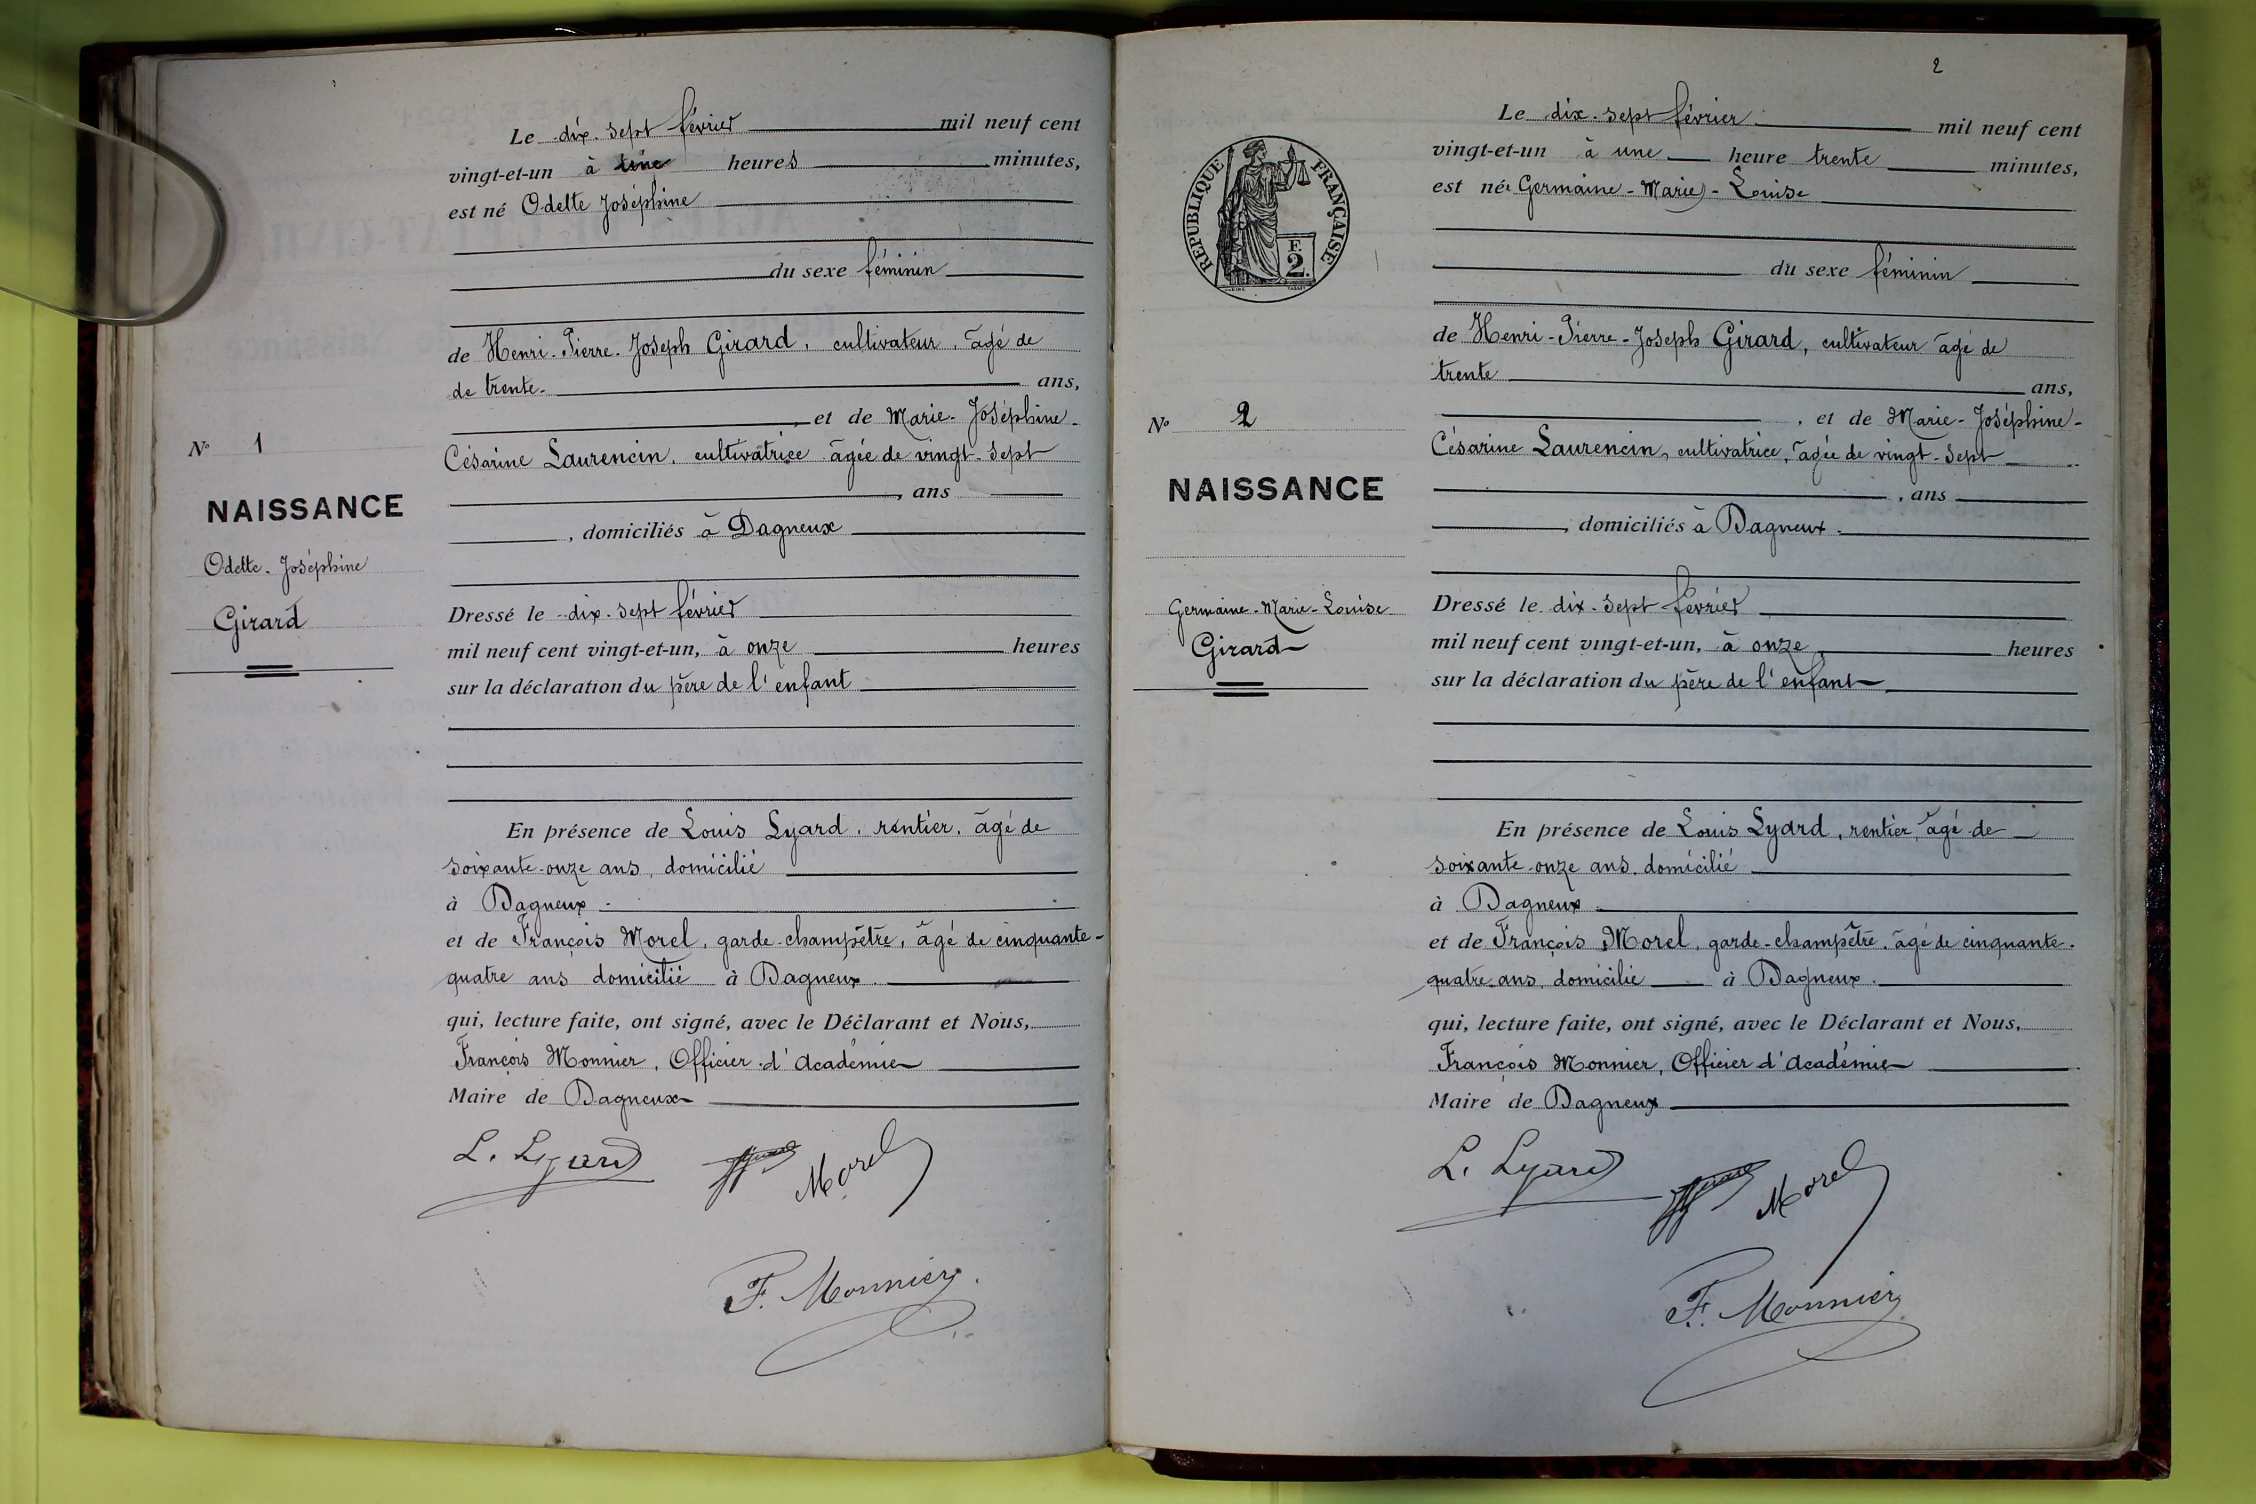 Le dix-sept février mil neuf cent
vingt-et-un à une heures minutes,
est né Odette Joséphine
du sexe féminin
de Henri-Pierre-Joseph Girard, cultivateur, âgé de
de trente ans,
et de Marie-Joséphine-
Césarine Laurencin, cultivatrice âgée de vingt-sept
, ans
, domiciliés à Dagneux
Dressé le dix-sept février
mil neuf cent vingt-et-un, à onze heures
sur la déclaration du père de l'enfant
En présence de Louis Lyard, rentier, âgé de
soixante-onze ans, domicilié
à Dagneux
et de François Morel, garde-champêtre, âgé de cinquante-
quatre ans domicilié à Dagneux.
qui, lecture faite, ont signé, avec le Déclarant et Nous,
François Monnier, Officier d'académie
Maire de Dagneux
L. Lyard
Morel
F. Monnier
N° 1
NAISSANCE
Odette-Joséphine
Girard
2
Le dix-sept février mil neuf cent
vingt-et-un à une heure trente minutes,
est née Germaine-Marie-Louise
du sexe féminin
de Henri-Pierre-Joseph Girard, cultivateur âgé de
trente ans,
, et de Marie-Joséphine-
Césarine Laurencin, cultivatrice, âgée de vingt-sept
, ans
, domiciliés à Dagneux.
Dressé le dix-sept février
mil neuf cent vingt-et-un, à onze heures
sur la déclaration du père de l'enfant
En présence de Louis Lyard, rentier, âgé de
soixante-onze ans, domicilié
à Dagneux
et de François Morel, garde-champêtre, âgé de cinquante-
quatre ans, domicilié à Dagneux.
qui, lecture faite, ont signé, avec le Déclarant et Nous,
François Monnier, Officier d'académie
Maire de Dagneux
L. Lyard
Morel
F. Monnier
RÉPUBLIQUE FRANÇAISE
F.
2.
N° 2
NAISSANCE
Germaine-Marie-Louise
Girard